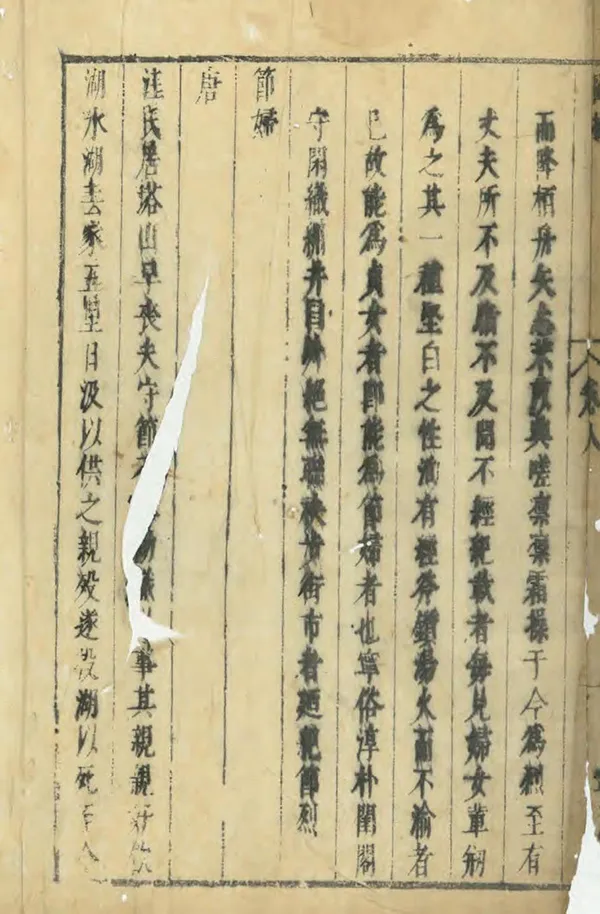 卷八
而降栢舟矢志興嗟凜凜霜操于今為烈至有
丈夫所不及不及聞不經紀載者每見婦女輩
為之其一種堅白之性有經斧鑕湯火而不渝者
已故能為貞女者即能為節婦者也寧俗淳朴閨閤
守閑織井臼外絕無聯袂步街市者廼節烈
節婦
唐
汪氏居塔山早喪夫守節事其親親好飲
湖水湖去家五里日汲以供之親歿遂投湖以死至今